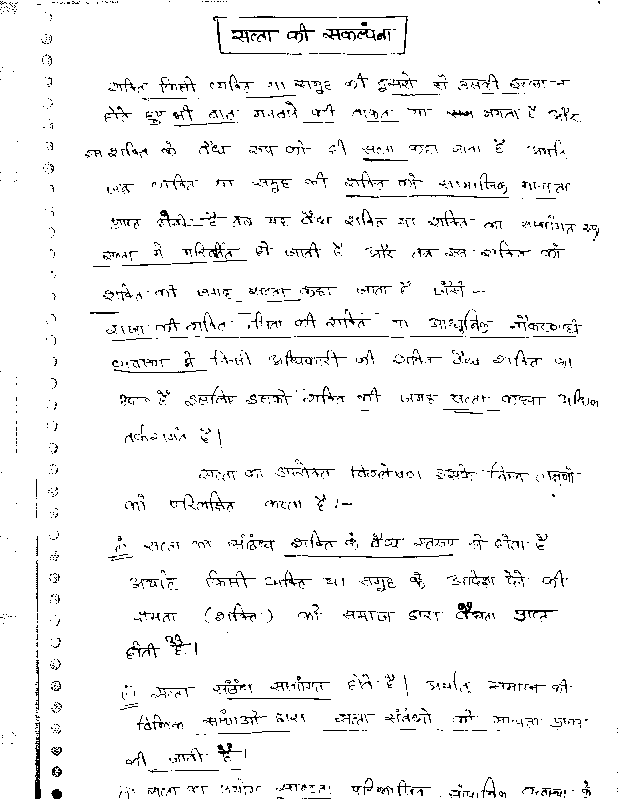 सत्ता की संकल्पना
शक्ति किसी व्यक्ति या समूह की दूसरो से उसकी इच्छा न
होते हुए भी बात मनवाने की ताकत या क्षमता है और
इस शक्ति के वैध रूप को ही सत्ता कहा जाता है अर्थात
जब व्यक्ति या समूह की शक्ति को सामाजिक मान्यता
प्राप्त होती है तब यह वैध शक्ति या शक्ति का संस्थागत रूप
सत्ता मे परिवर्तित हो जाती है और तब उस शक्ति को
शक्ति की जगह सत्ता कहा जाता है जैसे -
राजा की शक्ति पिता की शक्ति या आधुनिक नौकरशाही
व्यवस्था मे किसी अधिकारी की शक्ति वैध शक्ति का
रूप है इसलिए इसको शक्ति की जगह सत्ता कहना अधिक
तर्कसंगत है।
सत्ता का उपरोक्त विश्लेषण इसके निम्न लक्षणो
को परिलक्षित करता है :-
सत्ता का संबंध शक्ति के वैध स्वरूप से होता है
अर्थात किसी व्यक्ति या समूह के आदेश देने की
क्षमता (शक्ति) को समाज द्वारा वैधता प्राप्त
होती है।
सत्ता संबंध संस्थागत होते है। अर्थात समाज की
विभिन्न संस्थाओ द्वारा सत्ता संबंधो को मान्यता प्रदान
की जाती है।
सत्ता का प्रयोग परिभाषित के